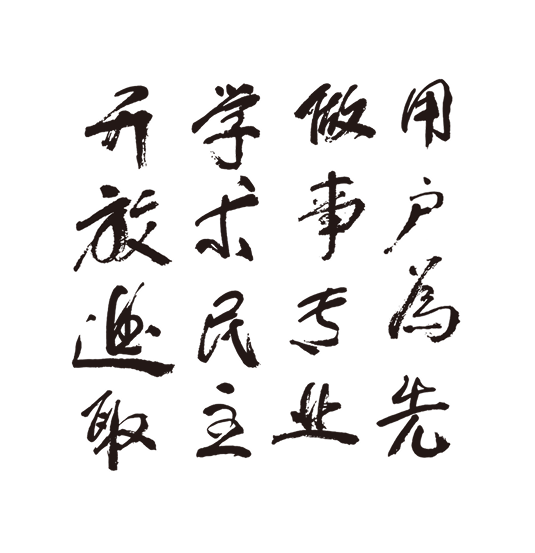 用户为先
做事专业
学术民主
开放进取